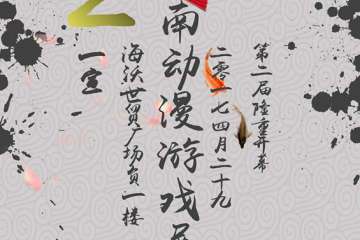 第二届隆重开幕
二零一七四月二十九
南动漫游戏展
海沃世贸广场负一楼
一定